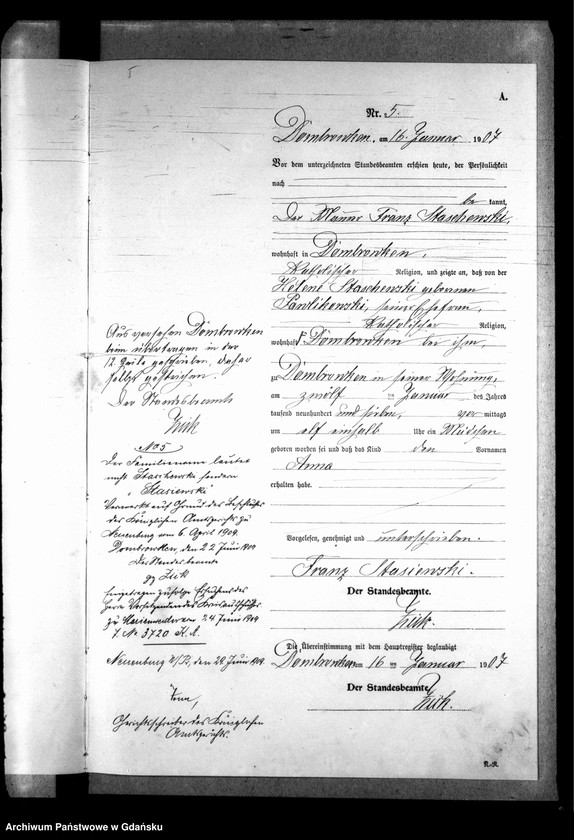 5
A.
Nr. 5.
Dombrowken, am 16. Januar 1907
Vor dem unterzeichneten Standesbeamten erschien heute, der Persönlichkeit
nach
be kannt,
Der Maurer Franz Staschewski,
wohnhaft in Dombrowken,
katholischer Religion, und zeigte an, daß von der
Helene Staschewski geborenen
Pawlikowski, seiner Ehefrau,
katholischer Religion,
wohnhaft Dombrowken bei ihm,
zu Dombrowken in seiner Wohnung,
am zwölf ten Januar des Jahres
tausend neunhundert und sieben, vor mittags
um elf einhalb Uhr ein Mädchen
geboren worden sei und daß das Kind den Vornamen
Anna
erhalten habe.
Vorgelesen, genehmigt und unterschrieben.
Franz Stasiewski.
Der Standesbeamte.
Die Übereinstimmung mit dem Hauptregister beglaubigt
Dombrowken am 16 ten Januar 1907
Der Standesbeamte
Aus versehen Dombrowken
beim übertragen in der
12 Zeile geschrieben, daher
selbst gestrichen.
Der Standesbeamte
No 5
Der Familienname lautet
nicht Staschewski sondern
"Stasiewski"
Vermerkt auf Grund des Beschlusses
des Königlichen Amtsgerichts zu
Neuenburg vom 6. April 1909.
Dombrowken, den 22 Juni 1909
Der Standesbeamte
gz
Eingetragen zufolge Ersuchens des
Herrn Vorsitzenden des Kreisausschusses
zu Marienwerder v. 24 Juni 1909
J. No 3720 K. A.
Neuenburg W/Pr, den 28 Juni 1909.
Gerichtsschreiber des Königlichen
Amtsgerichts.
Archiwum Państwowe w Gdańsku